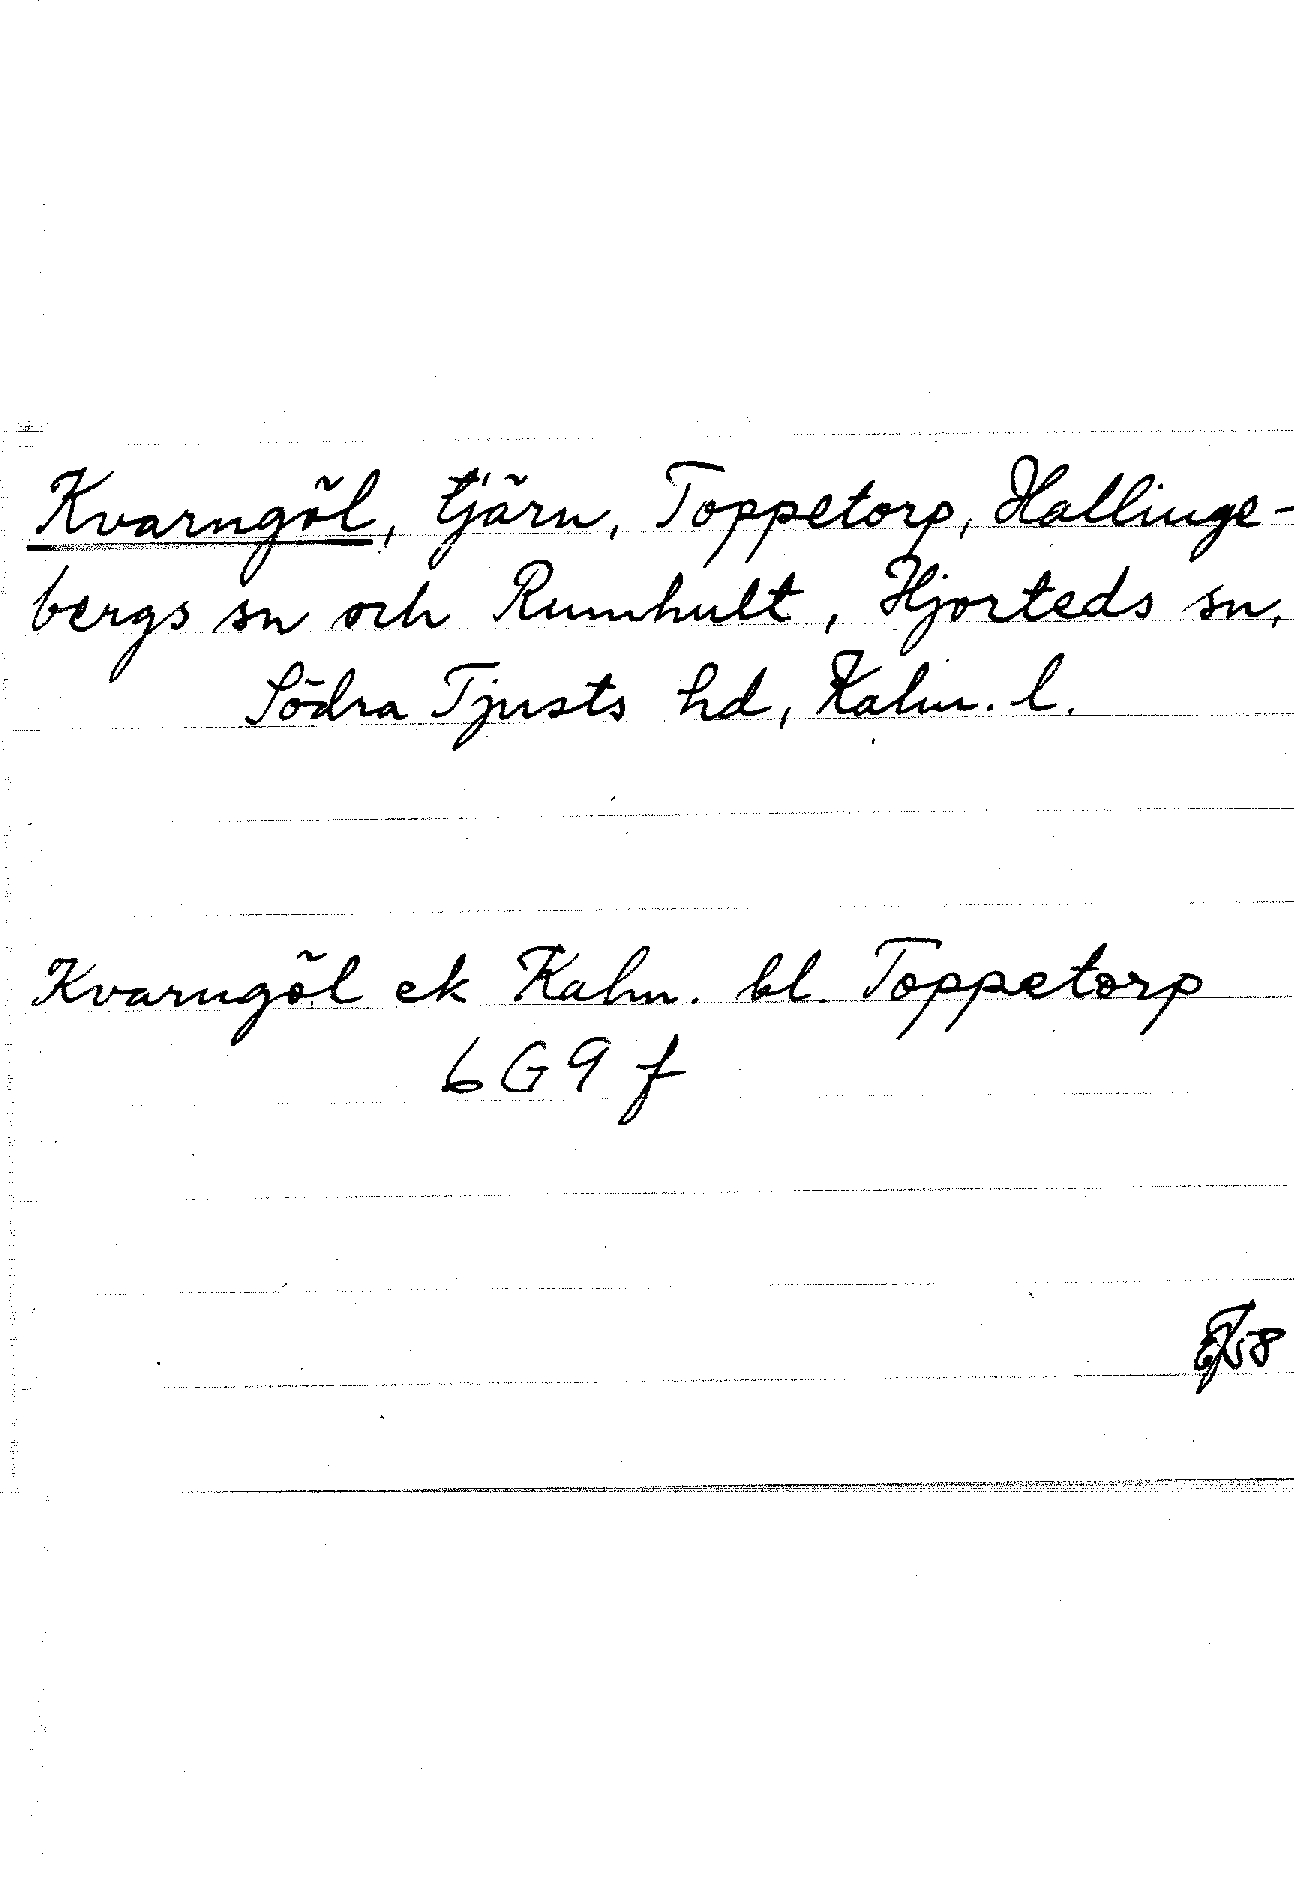 Kvarngöl, tjärn, Toppetorp, Hallinge-
bergs sn och Rumhult, Hjorteds sn,
Södra Tjusts hd, Kalm. l.
Kvarngöl ek Kalm. bl. Toppetorp
6G9f